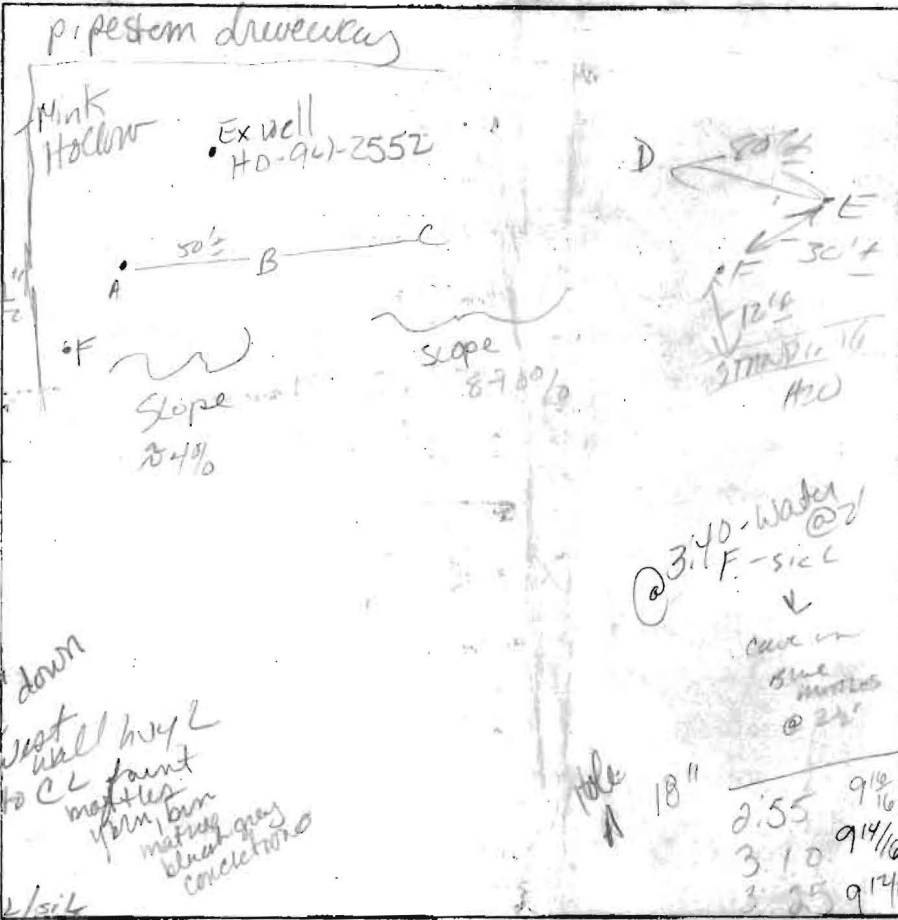 pipestem driveway
Mink
Hollow
Ex well
HO-94-2552
50'±
A
B
C
F
Slope
≈4%
Slope
D
80'±
E
30'±
F
12'±
H2O
@3:40-Water
@2'
F-sicL
cave in
Blue
mottles
@ 2½'
down
West
wall hvy L
to CL faint
mottles
bluish gray
concretions
L/siL
Hole
A
18"
2:55
3 10 9 14/16
3 25 9 12/